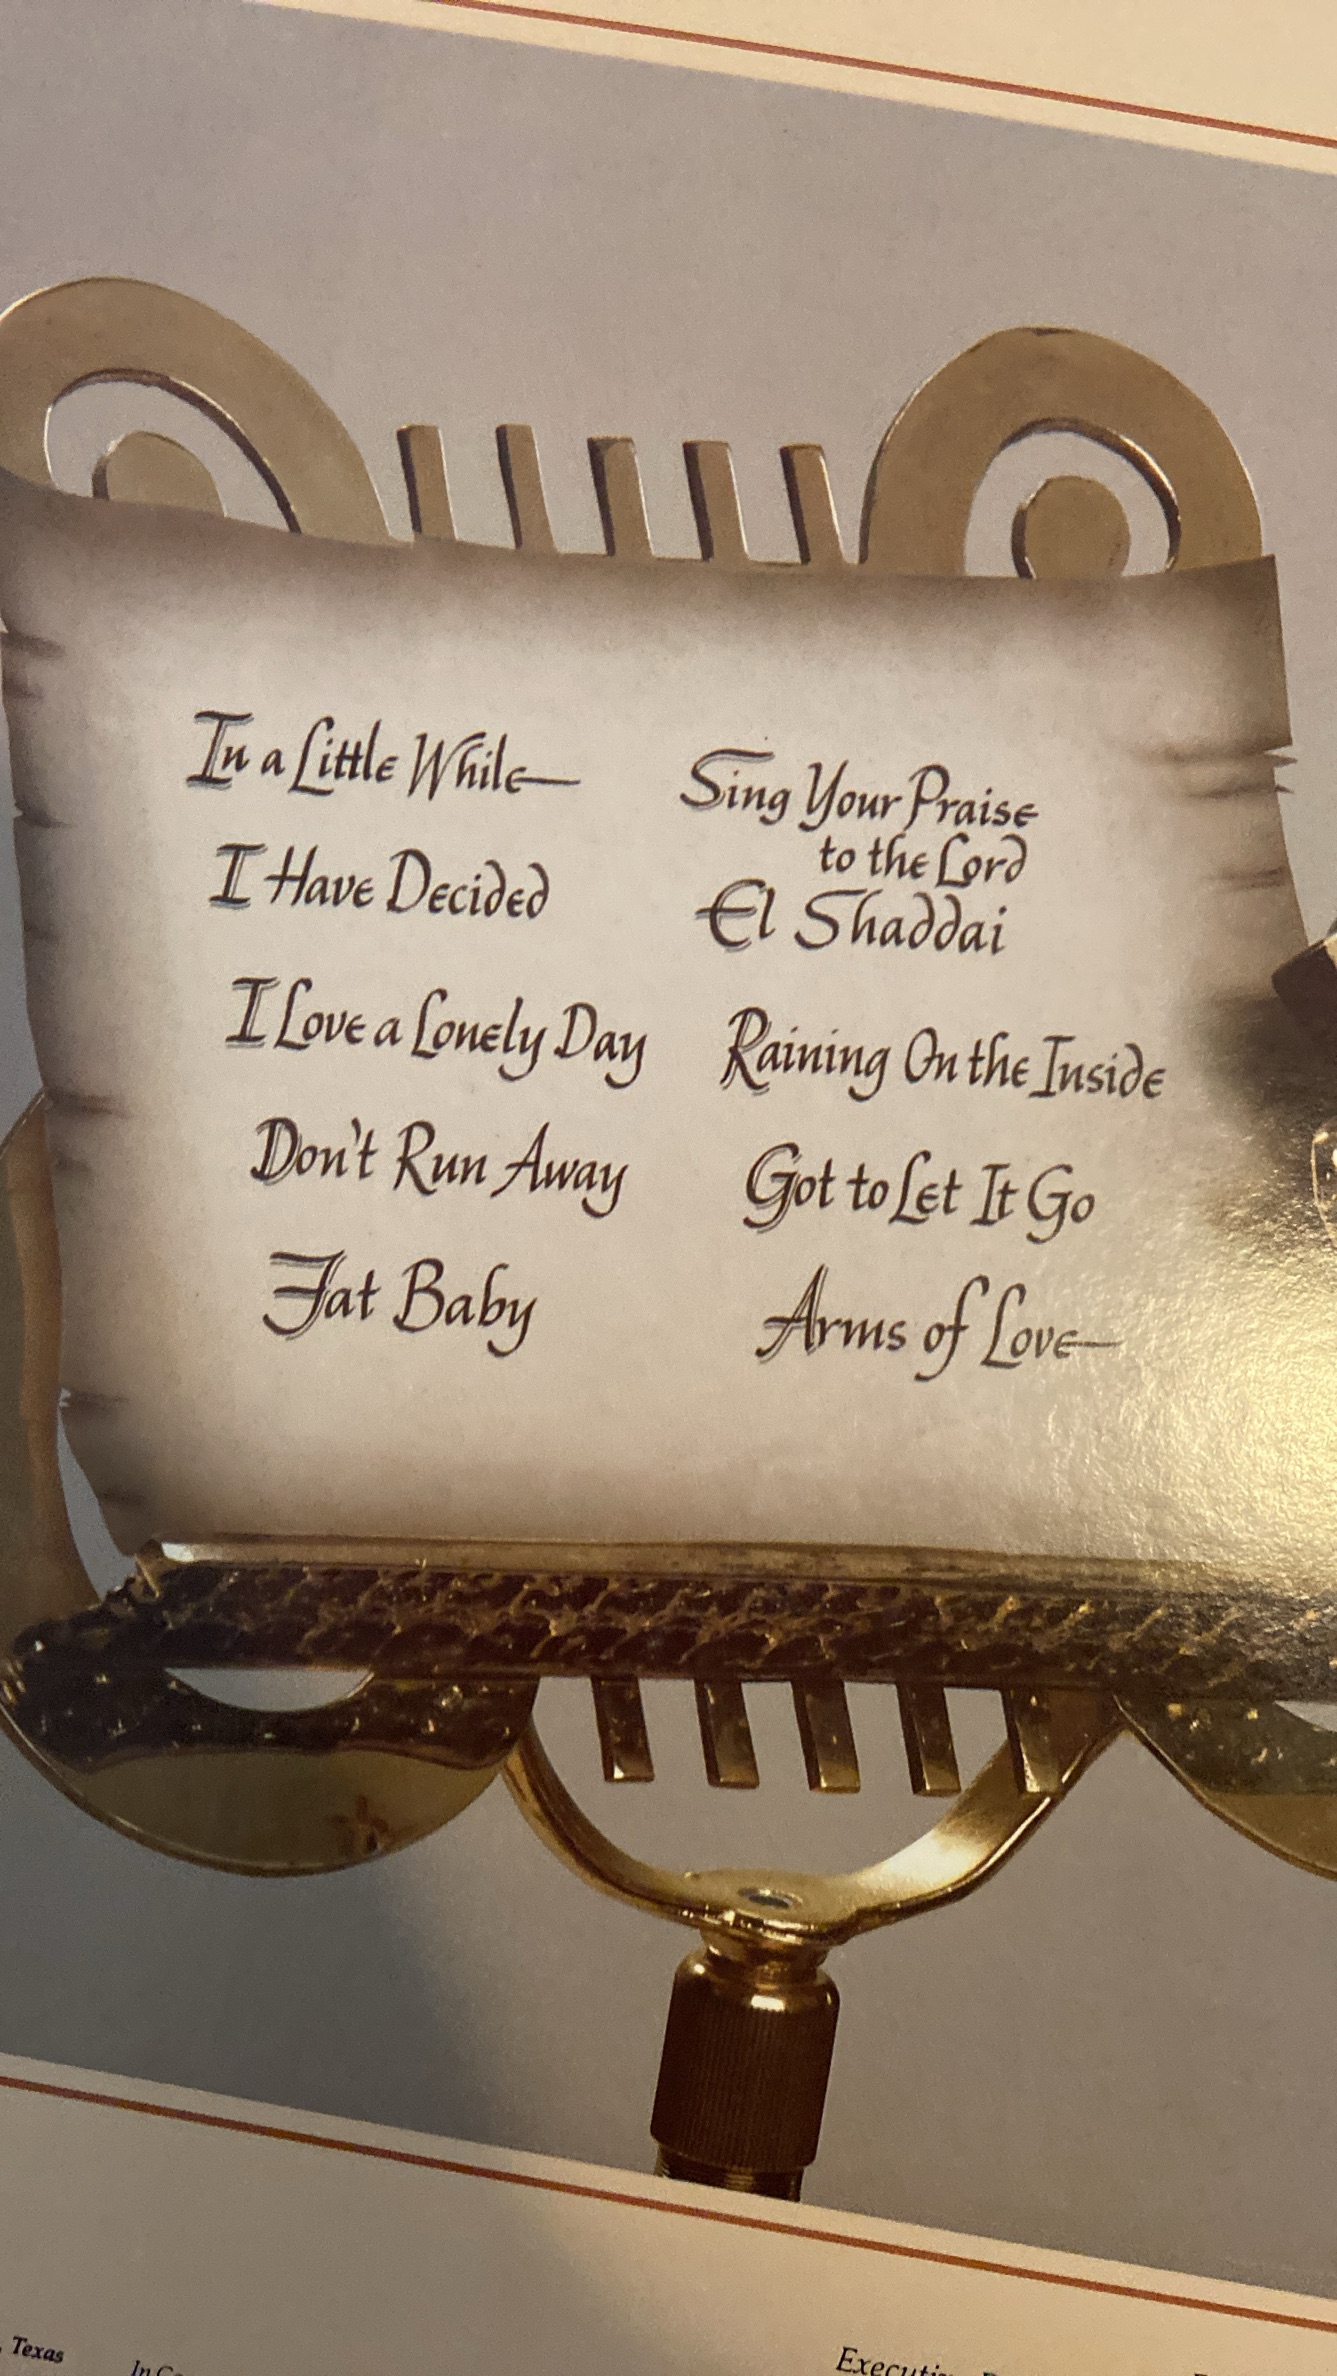 In a Little While
I Have Decided
I Love a Lonely Day
Don't Run Away
Fat Baby
Sing Your Praise
to the Lord
El Shaddai
Raining On the Inside
Got to Let It Go
Arms of Love
Texas
In